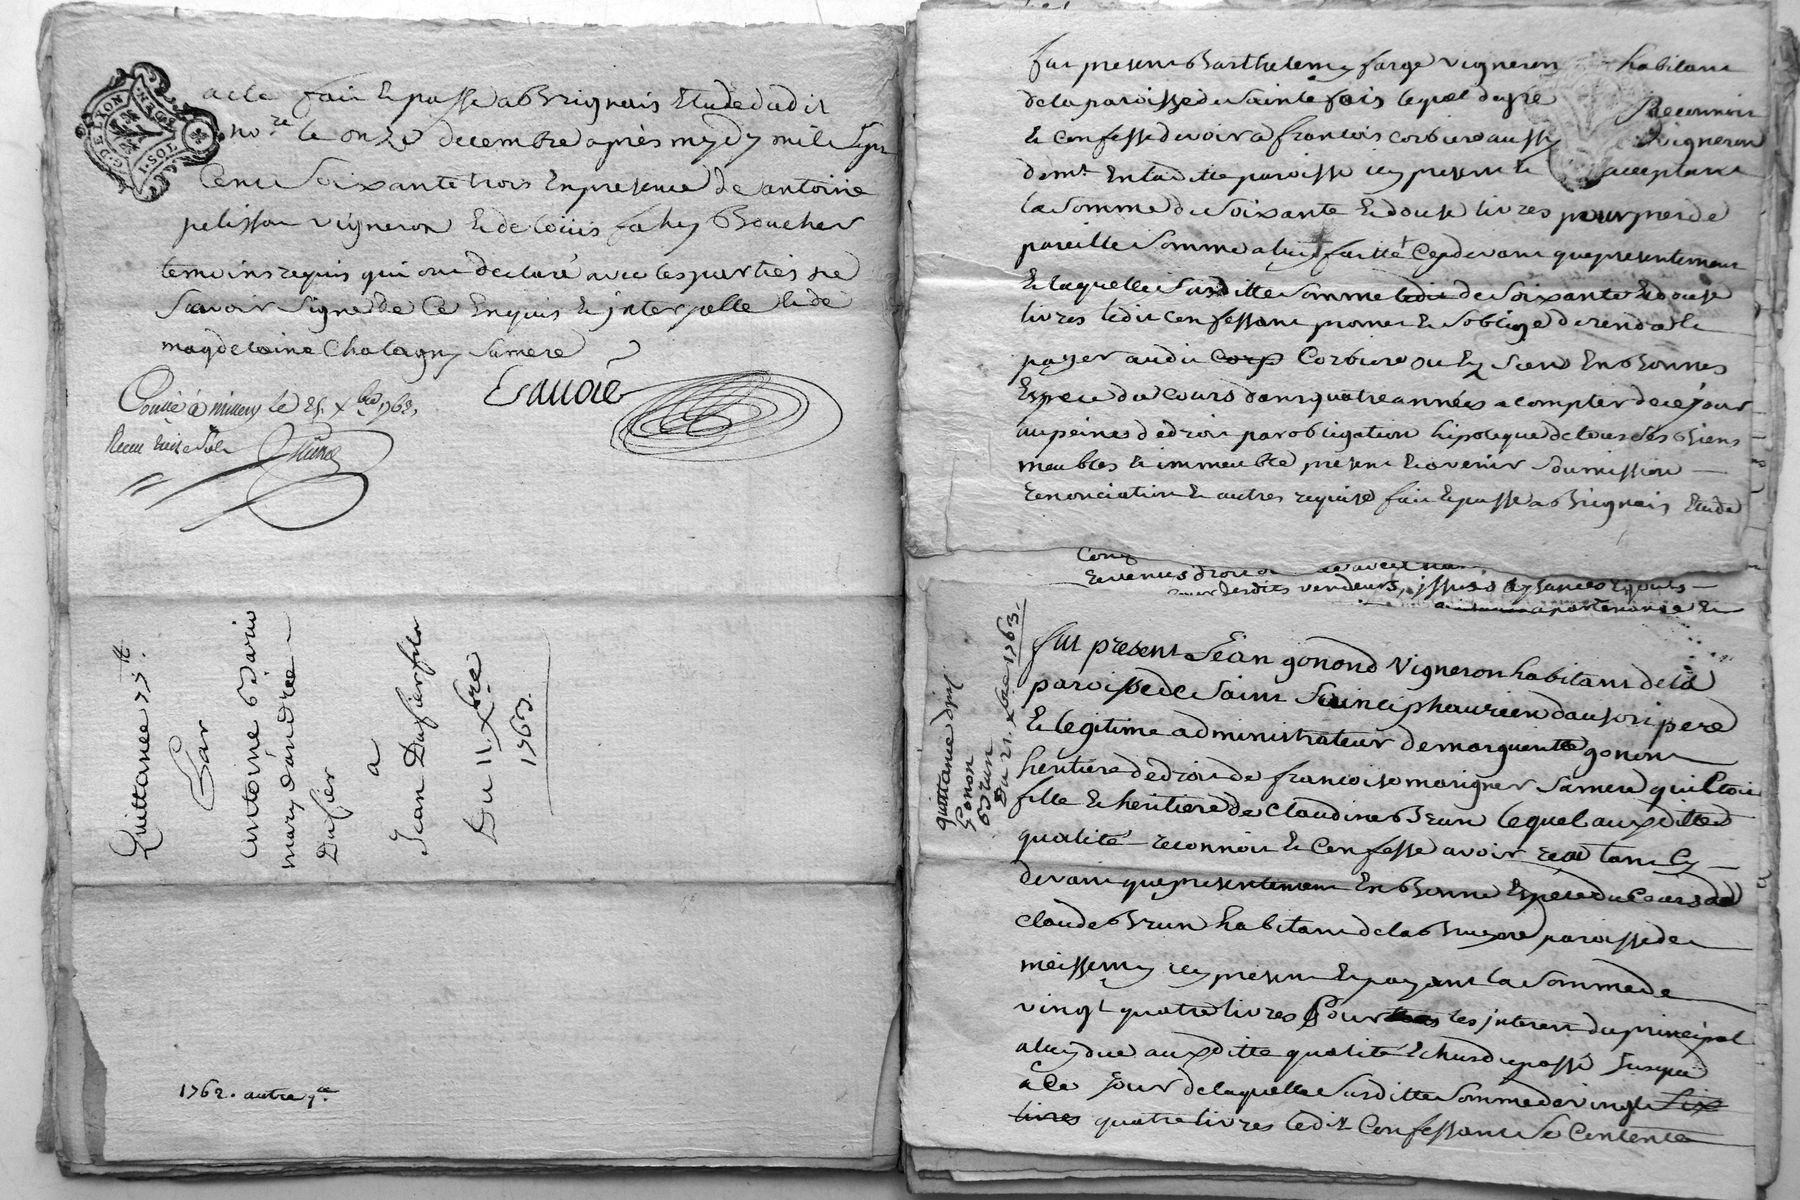 G. DE LYON
MOYEN.
1. SOL
acte fait & passé a Brignais Etude dudit
no.re le onze decembre après mydy mil sept
Cent Soixante trois En presence de antoine
pelisson vigneron & de Loüis fahy Boucher
temoins requis qui ont declaré avec les parties ne
Scavoir signé de Ce Enquis & interpellé
magdelaine Chatagny Sa mere
Conllé à millery le 21. xbre 1763.
Recu treize Sols
Quittance 77 tt.
Par
antoine
mary dandrée
Dufier
a
Jean Dufier fils
Du 11. xbre
1763.
1762. autre q.ce
fut present Barthelemy farge vigneron habitant
de la paroisse de Sainte fois lequel de gre Reconnoit
& Confesse devoir a francois Corbiere aussy vigneron
demt. En la ditte paroisse icy present & acceptant
la Somme de Soixante & douse livres pour prest de
pareille Somme a luy faitte Cy devant que presentement
& laquelle Susditte Somme de Soixante & douse
livres ledit Confessant promet & s'oblige de rendre &
payer audit Corp Corbiere ou les Siens En Bonnes
Espece du Cours dans quatre années a compter de ce jour
au peines de droit par obligation hipoteque de tous ses Biens
meubles & immeuble present & avenir Soumission
renonciation & autres requise fait & passé a Brignais Etude
vendeurs, issues aysances
apartenance &
quittance
Gonon
Brun
Du 21. xbre 1763.
fut present Jean gonond Vigneron habitant de la
paroisse de Saint Sainciphaurien dauson pere
& legitime administrateur de margueritte gonon
heritiere de droit de francoise marigner Sa mere qui Etoit
fille & heritiere de Claudine Brun lequel auxdittes
qualité reconnoit & Confesse avoir recu tant Cy
devant que presentement En Bonne Espece du Cours de
Claude Brun habitant de la Bruyere paroisse de
meissemy icy present & payant la Somme de
vingt quatre livres Pour les interest du principal
a luy due auxditte qualité Echus du passé Jusque
a Ce Jour de laquelle Susditte Somme de vingt Six
livres quatre livres ledit Confessant Se Contente